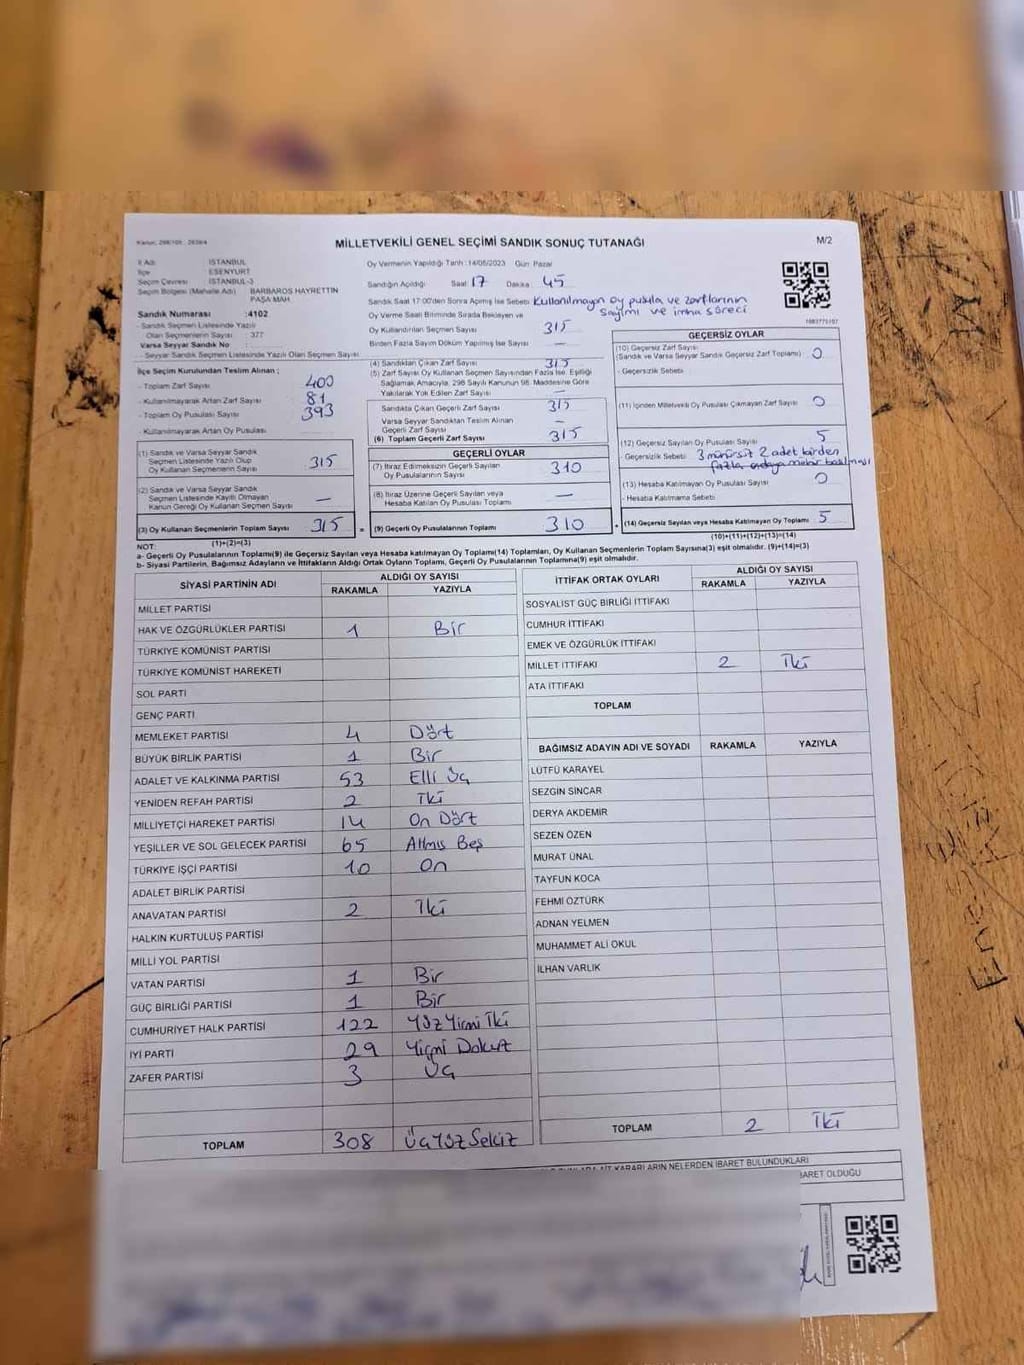 Kanun: 298/105 : 2839/4
MİLLETVEKİLİ GENEL SEÇİMİ SANDIK SONUÇ TUTANAĞI
M/2
İl Adı : İSTANBUL
İlçe : ESENYURT
Seçim Çevresi : İSTANBUL-3
Seçim Bölgesi (Mahalle Adı) : BARBAROS HAYRETTİN PAŞA MAH.
Sandık Numarası : 4102
- Sandık Seçmen Listesinde Yazılı
Olan Seçmenlerin Sayısı : 377
Varsa Seyyar Sandık No :
- Seyyar Sandık Seçmen Listesinde Yazılı Olan Seçmen Sayısı :
Oy Vermenin Yapıldığı Tarih :14/05/2023 Gün: Pazar
Sandığın Açıldığı Saat: 17 Dakika: 45
Sandık Saat 17:00'den Sonra Açılmış İse Sebebi: Kullanılmayan oy pusula ve zarflarının
sayımı ve imha süreci
Oy Verme Saati Bitiminde Sırada Bekleyen ve
Oy Kullandırılan Seçmen Sayısı 315
Birden Fazla Sayım Döküm Yapılmış İse Sayısı —
İlçe Seçim Kurulundan Teslim Alınan ;
- Toplam Zarf Sayısı 400
- Kullanılmayarak Artan Zarf Sayısı 81
- Toplam Oy Pusulası Sayısı 393
- Kullanılmayarak Artan Oy Pusulası
(1) Sandık ve Varsa Seyyar Sandık
Seçmen Listesinde Yazılı Olup
Oy Kullanan Seçmenlerin Sayısı 315
(2) Sandık ve Varsa Seyyar Sandık
Seçmen Listesinde Kayıtlı Olmayan
Kanun Gereği Oy Kullanan Seçmen Sayısı —
(3) Oy Kullanan Seçmenlerin Toplam Sayısı 315
(1)+(2)=(3)
(4) Sandıktan Çıkan Zarf Sayısı 315
(5) Zarf Sayısı Oy Kullanan Seçmen Sayısından Fazla İse, Eşitliği
Sağlamak Amacıyla, 298 Sayılı Kanunun 98. Maddesine Göre
Yakılarak Yok Edilen Zarf Sayısı —
Sandıkta Çıkan Geçerli Zarf Sayısı 315
Varsa Seyyar Sandıktan Teslim Alınan
Geçerli Zarf Sayısı —
(6) Toplam Geçerli Zarf Sayısı 315
GEÇERLİ OYLAR
(7) İtiraz Edilmeksizin Geçerli Sayılan
Oy Pusulalarının Sayısı 310
(8) İtiraz Üzerine Geçerli Sayılan veya
Hesaba Katılan Oy Pusulası Toplamı —
= (9) Geçerli Oy Pusulalarının Toplamı 310
GEÇERSİZ OYLAR
(10) Geçersiz Zarf Sayısı
(Sandık ve Varsa Seyyar Sandık Geçersiz Zarf Toplamı) 0
- Geçersizlik Sebebi
(11) İçinden Milletvekili Oy Pusulası Çıkmayan Zarf Sayısı 0
(12) Geçersiz Sayılan Oy Pusulası Sayısı 5
- Geçersizlik Sebebi 3 mühürsüz 2 adet birden
fazla
(13) Hesaba Katılmayan Oy Pusulası Sayısı 0
- Hesaba Katılmama Sebebi
+ (14) Geçersiz Sayılan veya Hesaba Katılmayan Oy Toplamı 5
(10)+(11)+(12)+(13)=(14)
NOT:
a- Geçerli Oy Pusulalarının Toplamı(9) ile Geçersiz Sayılan veya Hesaba katılmayan Oy Toplamı(14) Toplamları, Oy Kullanan Seçmenlerin Toplam Sayısına(3) eşit olmalıdır. (9)+(14)=(3)
b- Siyasi Partilerin, Bağımsız Adayların ve İttifakların Aldığı Ortak Oyların Toplamı, Geçerli Oy Pusulalarının Toplamına(9) eşit olmalıdır.
SİYASİ PARTİNİN ADI ALDIĞI OY SAYISI
RAKAMLA YAZIYLA
MİLLET PARTİSİ
HAK VE ÖZGÜRLÜKLER PARTİSİ 1 Bir
TÜRKİYE KOMÜNİST PARTİSİ
TÜRKİYE KOMÜNİST HAREKETİ
SOL PARTİ
GENÇ PARTİ
MEMLEKET PARTİSİ 4 Dört
BÜYÜK BİRLİK PARTİSİ 1 Bir
ADALET VE KALKINMA PARTİSİ 53 Elli Üç
YENİDEN REFAH PARTİSİ 2 İki
MİLLİYETÇİ HAREKET PARTİSİ 14 On Dört
YEŞİLLER VE SOL GELECEK PARTİSİ 65 Altmış Beş
TÜRKİYE İŞÇİ PARTİSİ 10 On
ADALET BİRLİK PARTİSİ
ANAVATAN PARTİSİ 2 İki
HALKIN KURTULUŞ PARTİSİ
MİLLİ YOL PARTİSİ
VATAN PARTİSİ 1 Bir
GÜÇ BİRLİĞİ PARTİSİ 1 Bir
CUMHURİYET HALK PARTİSİ 122 Yüz Yirmi İki
İYİ PARTİ 29 Yirmi Dokuz
ZAFER PARTİSİ 3 Üç
TOPLAM 308 Üç Yüz Sekiz
İTTİFAK ORTAK OYLARI ALDIĞI OY SAYISI
RAKAMLA YAZIYLA
SOSYALİST GÜÇ BİRLİĞİ İTTİFAKI
CUMHUR İTTİFAKI
EMEK VE ÖZGÜRLÜK İTTİFAKI
MİLLET İTTİFAKI 2 İki
ATA İTTİFAKI
TOPLAM
BAĞIMSIZ ADAYIN ADI VE SOYADI RAKAMLA YAZIYLA
LÜTFÜ KARAYEL
SEZGİN SİNCAR
DERYA AKDEMİR
SEZEN ÖZEN
MURAT ÜNAL
TAYFUN KOCA
FEHMİ ÖZTÜRK
ADNAN YELMEN
MUHAMMET ALİ OKUL
İLHAN VARLIK
TOPLAM 2 İki
AİT KARARLARIN NELERDEN İBARET BULUNDUKLARI
İBARET OLDUĞU